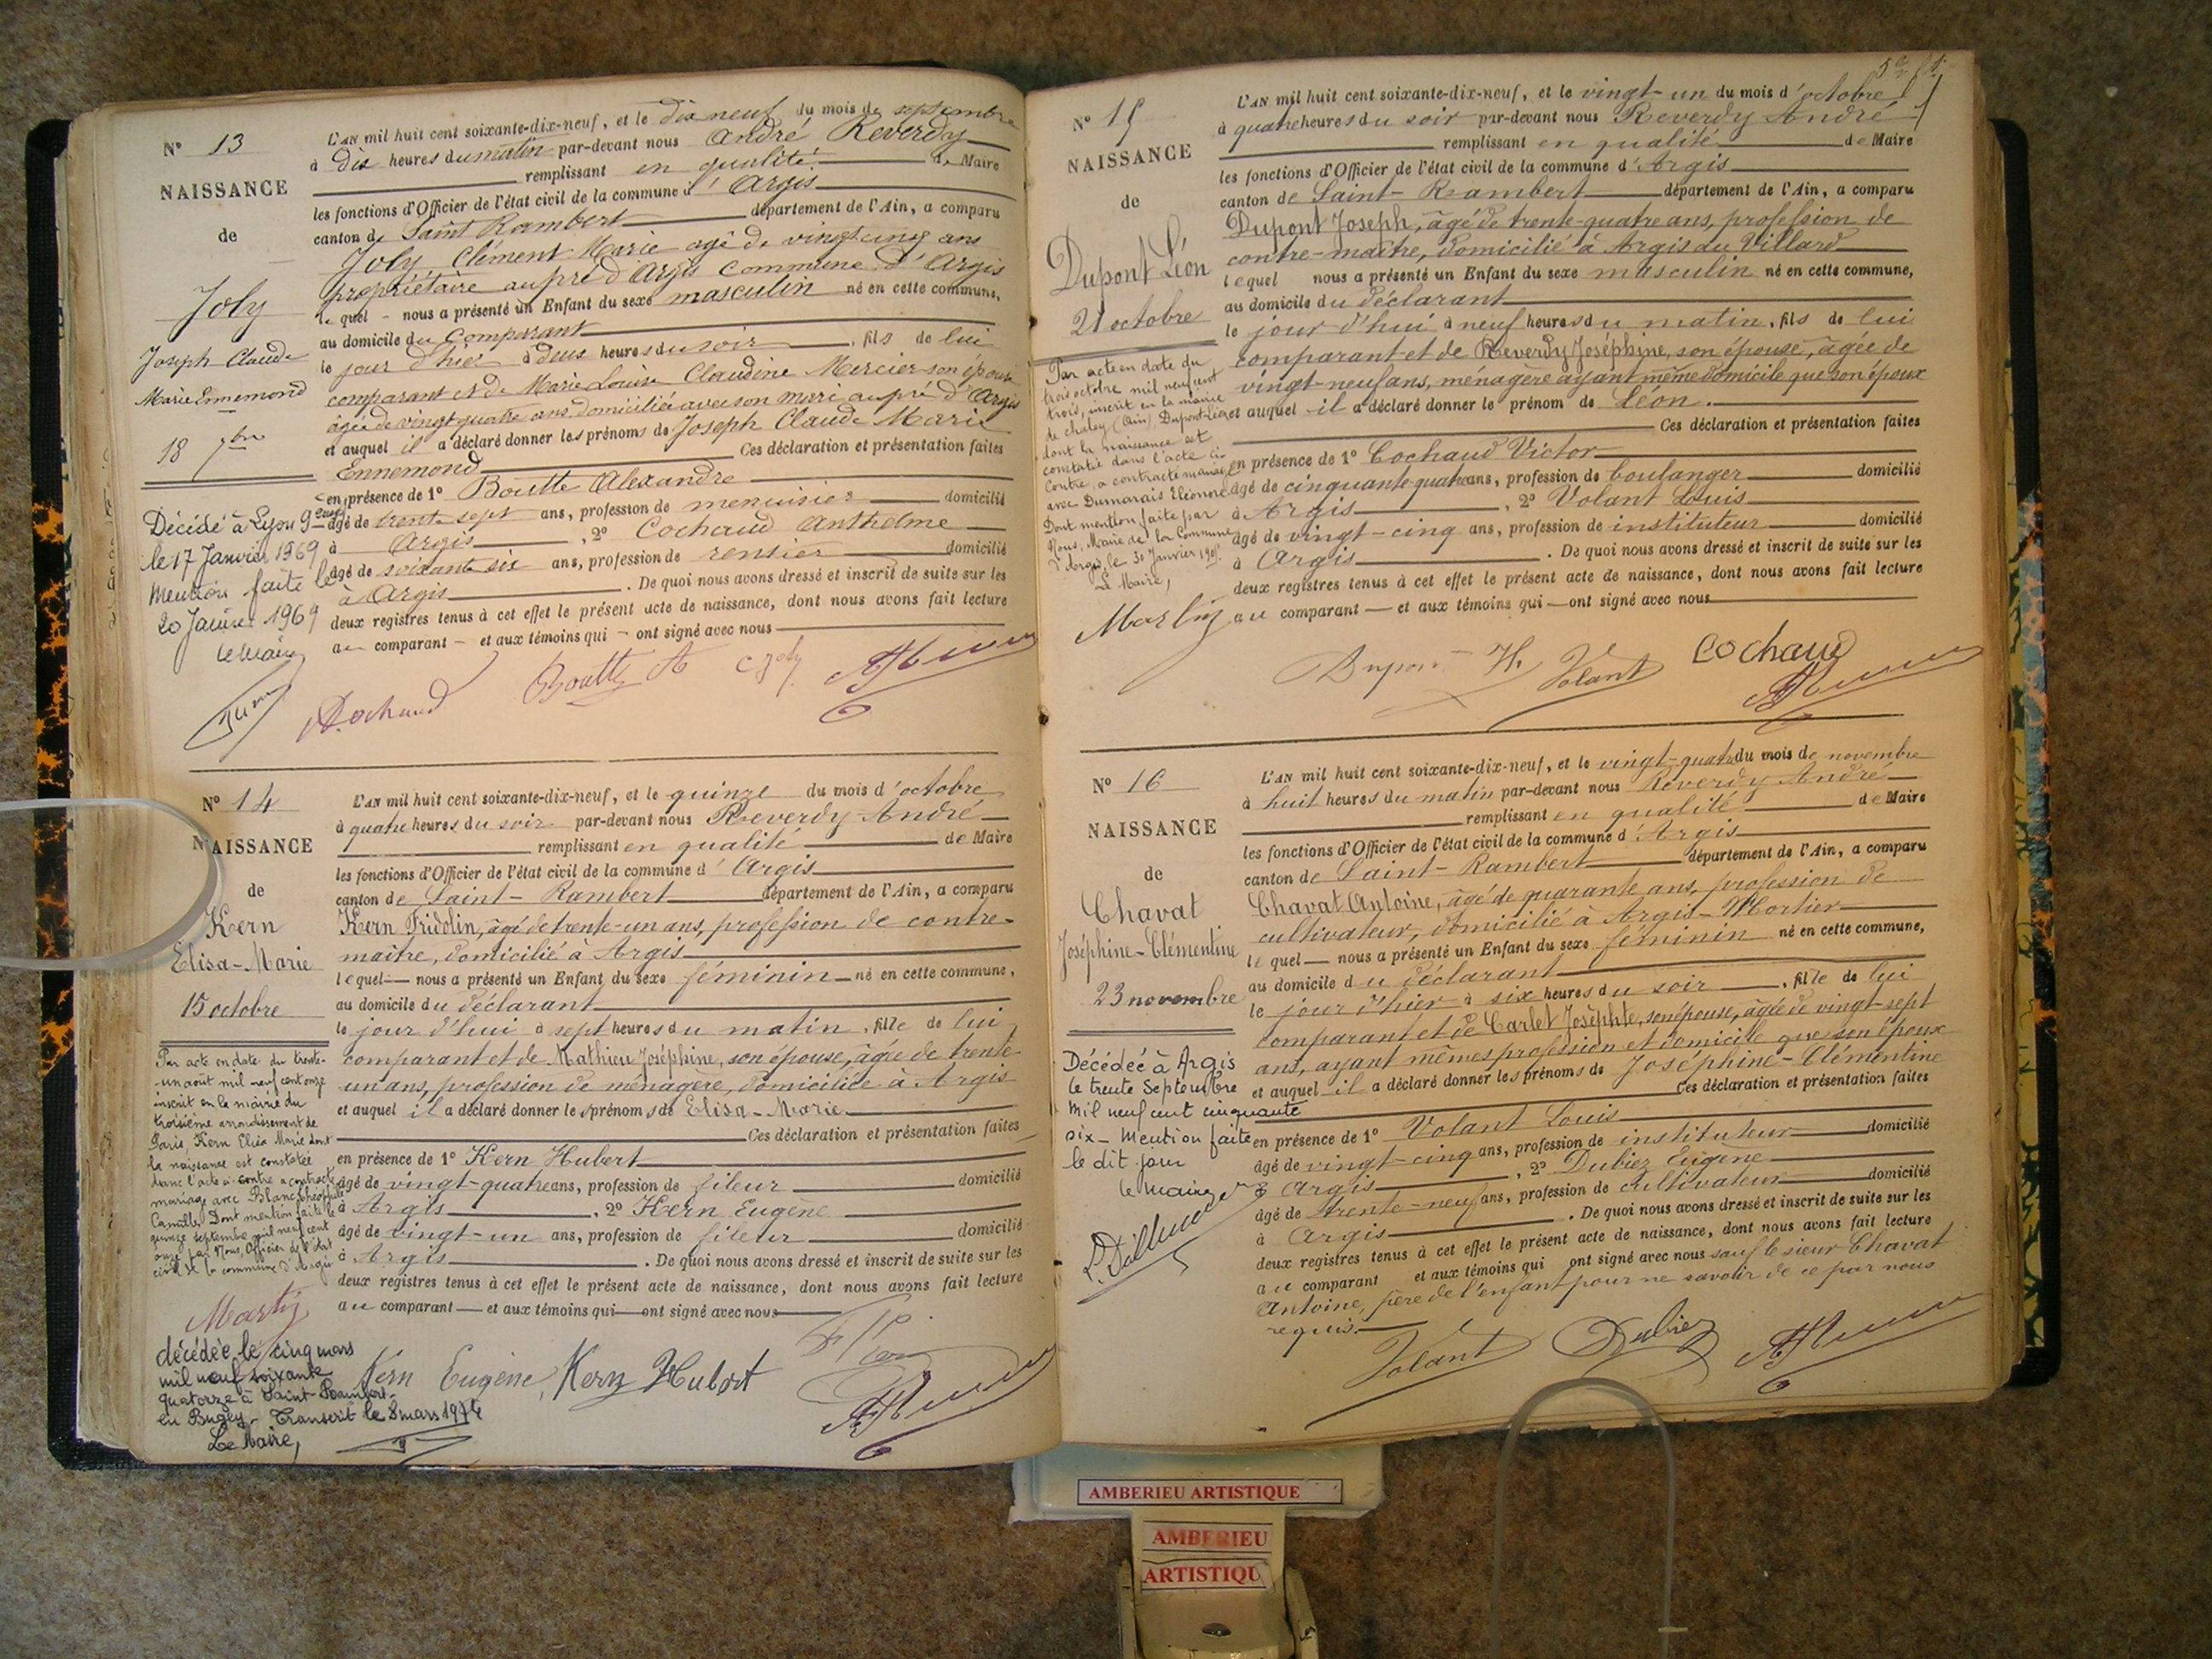 N° 13
NAISSANCE
de
Joly
Joseph Claude
Marie Ennemond
18 7bre
Décédé à Lyon 9ème
le 17 Janvier 1969
Mention faite le
20 Janvier 1969
le Maire
L'AN mil huit cent soixante-dix-neuf, et le dix neuf du mois de septembre
à dix heures du matin par-devant nous André Reverdy
remplissant en qualité de Maire
les fonctions d'Officier de l'état civil de la commune d'Argis
canton de Saint Rambert département de l'Ain, a comparu
Joly Clément Marie agé de vingt cinq ans
propriétaire au pré d'Argis commune d'Argis
lequel nous a présenté un Enfant du sexe masculin né en cette commune,
au domicile du Comparant
le jour d'hier à deux heures du soir, fils de lui
comparant et de Marie Louise Claudine Mercier son épouse
âgée de vingt quatre ans domiciliée avec son mari au pré d'Argis
et auquel il a déclaré donner les prénoms de Joseph Claude Marie
Ennemond Ces déclaration et présentation faites
en présence de 1° Boutte Alexandre
âgé de trente sept ans, profession de menuisier domicilié
à Argis, 2° Cochaud Anthelme
âgé de soixante six ans, profession de rentier domicilié
à Argis. De quoi nous avons dressé et inscrit de suite sur les
deux registres tenus à cet effet le présent acte de naissance, dont nous avons fait lecture
au comparant et aux témoins qui ont signé avec nous
A. Cochaud Boutte A Joly
N° 14
NAISSANCE
de
Kern
Elisa-Marie
15 octobre
Par acte en date du trente-
un août mil neuf cent onze
inscrit en la mairie du
troisième arrondissement de
Paris, Kern Elisa Marie dont
la naissance est constatée
dans l'acte ci-contre a contracté
mariage avec Blanc théophile
Camille. Dont mention faite le
quinze septembre mil neuf cent
onze par Nous, Officier de l'état
civil de la commune d'Argis
Martin
décédée le cinq mars
mil neuf soixante
quatorze à Saint-Rambert-
en Bugey. Transcrit le 8 mars 1974
Le Maire,
L'AN mil huit cent soixante-dix-neuf, et le quinze du mois d'octobre
à quatre heures du soir par-devant nous Reverdy André
remplissant en qualité de Maire
les fonctions d'Officier de l'état civil de la commune d'Argis
canton de Saint-Rambert département de l'Ain, a comparu
Kern Fridolin, âgé de trente-un ans, profession de contre-
maître, domicilié à Argis
lequel nous a présenté un Enfant du sexe féminin né en cette commune,
au domicile du déclarant
le jour d'hui à sept heures du matin, fille de lui
comparant et de Mathieu Joséphine, son épouse, âgée de trente-
un ans, profession de ménagère, domiciliée à Argis
et auquel il a déclaré donner les prénoms de Elisa-Marie
Ces déclaration et présentation faites
en présence de 1° Kern Hubert
âgé de vingt-quatre ans, profession de fileur domicilié
à Argis, 2° Kern Eugène
âgé de vingt-un ans, profession de fileur domicilié
à Argis. De quoi nous avons dressé et inscrit de suite sur les
deux registres tenus à cet effet le présent acte de naissance, dont nous avons fait lecture
au comparant et aux témoins qui ont signé avec nous
Kern Eugène, Kern Hubert
N° 15
NAISSANCE
de
Dupont Léon
21 octobre
Par acte en date du
trois octobre mil neuf cent
trois, inscrit en la mairie
de chaley (Ain) Dupont Léon
dont la naissance est
constatée dans l'acte ci-
contre, a contracté mariage
avec Dumarais Eléonore
Dont mention faite par
Nous, Maire de la Commune
d'Argis, le 30 Janvier
Le Maire,
Martin
L'AN mil huit cent soixante-dix-neuf, et le vingt-un du mois d'octobre
à quatre heures du soir par-devant nous Reverdy André
remplissant en qualité de Maire
les fonctions d'Officier de l'état civil de la commune d'Argis
canton de Saint-Rambert département de l'Ain, a comparu
Dupont Joseph, âgé de trente-quatre ans, profession de
contre-maître, domicilié à Argis au Villard
lequel nous a présenté un Enfant du sexe masculin né en cette commune,
au domicile du déclarant
le jour d'hui à neuf heures du matin, fils de lui
comparant et de Reverdy Joséphine, son épouse, âgée de
vingt-neuf ans, ménagère ayant même domicile que son époux
et auquel il a déclaré donner le prénom de Léon.
Ces déclaration et présentation faites
en présence de 1° Cochaud Victor
âgé de cinquante quatre ans, profession de boulanger domicilié
à Argis, 2° Volant Louis
âgé de vingt-cinq ans, profession de instituteur domicilié
à Argis. De quoi nous avons dressé et inscrit de suite sur les
deux registres tenus à cet effet le présent acte de naissance, dont nous avons fait lecture
au comparant et aux témoins qui ont signé avec nous
Volant Cochaud
N° 16
NAISSANCE
de
Chavat
Joséphine-Clémentine
23 novembre
Décédée à Argis
le trente Septembre
mil neuf cent cinquante
six - Mention faite
le dit jour
le maire
L'AN mil huit cent soixante-dix-neuf, et le vingt-quatre du mois de novembre
à huit heures du matin par-devant nous Reverdy André
remplissant en qualité de Maire
les fonctions d'Officier de l'état civil de la commune d'Argis
canton de Saint-Rambert département de l'Ain, a comparu
Chavat Antoine, âgé de quarante ans, profession de
cultivateur, domicilié à Argis-Mortier
lequel nous a présenté un Enfant du sexe féminin né en cette commune,
au domicile du déclarant
le jour d'hier à six heures du soir, fille de lui
comparant et de Carlet Josèphte, son épouse, âgée de vingt-sept
ans, ayant mêmes profession et domicile que son époux
et auquel il a déclaré donner les prénoms de Joséphine-Clémentine
Ces déclaration et présentation faites
en présence de 1° Volant Louis
âgé de vingt-cinq ans, profession de instituteur domicilié
à Argis, 2° Dubiez Eugène
âgé de trente-neuf ans, profession de cultivateur domicilié
à Argis. De quoi nous avons dressé et inscrit de suite sur les
deux registres tenus à cet effet le présent acte de naissance, dont nous avons fait lecture
au comparant et aux témoins qui ont signé avec nous sauf le sieur Chavat
Antoine, père de l'enfant pour ne savoir de ce par nous
requis.
Volant Dubiez
AMBERIEU ARTISTIQUE
AMBERIEU
ARTISTIQU